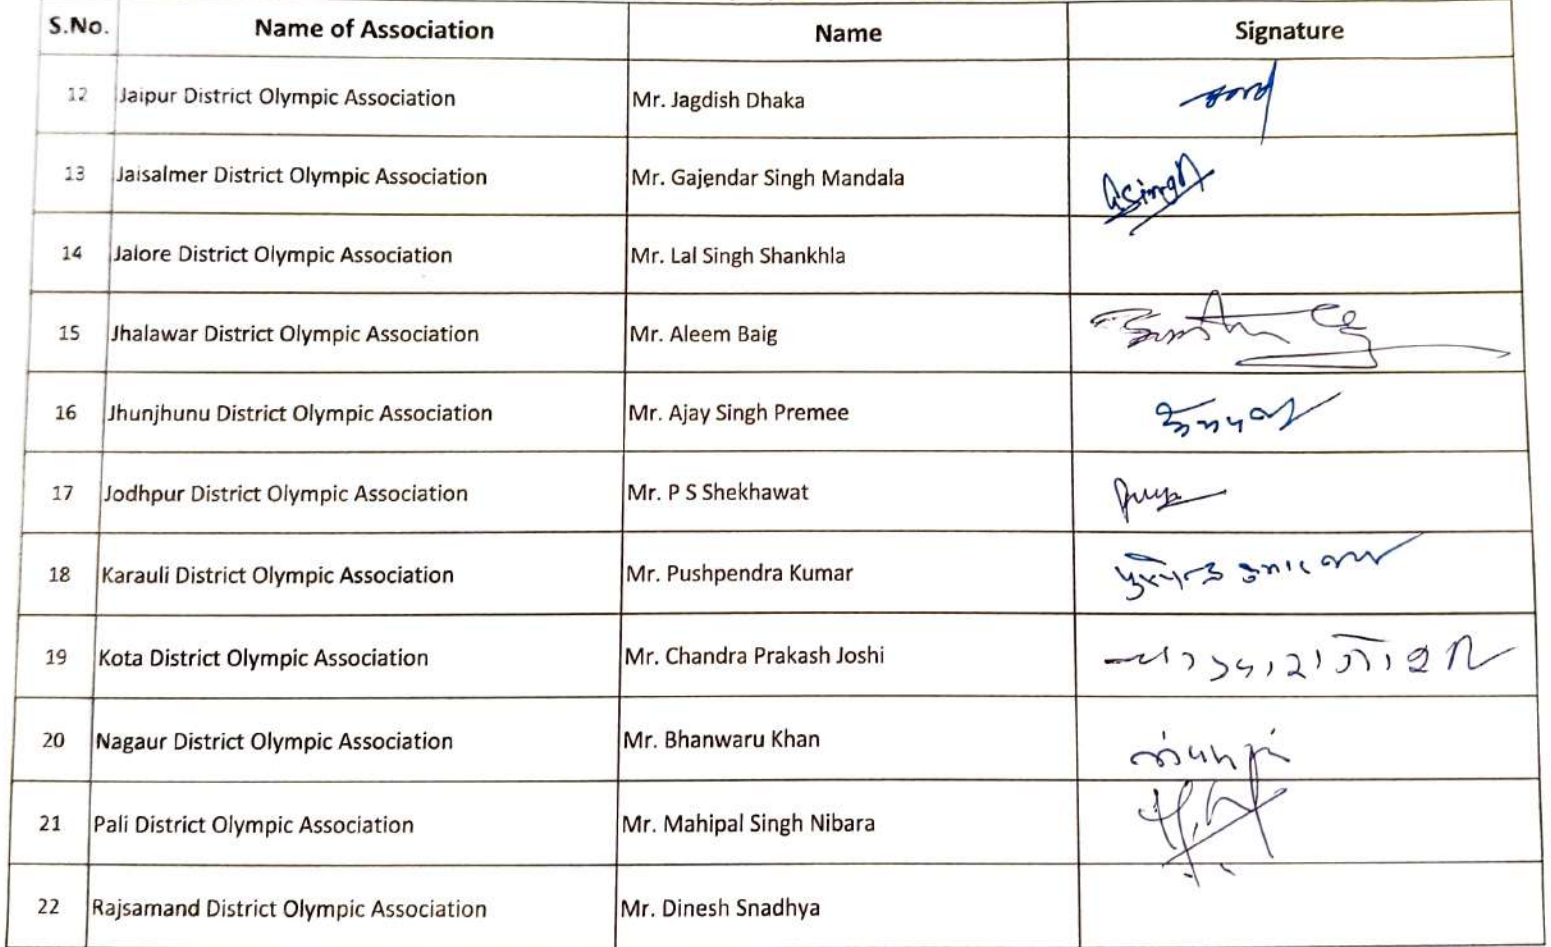 S.No. Name of Association Name Signature
12 Jaipur District Olympic Association Mr. Jagdish Dhaka
13 Jaisalmer District Olympic Association Mr. Gajendar Singh Mandala
14 Jalore District Olympic Association Mr. Lal Singh Shankhla
15 Jhalawar District Olympic Association Mr. Aleem Baig
16 Jhunjhunu District Olympic Association Mr. Ajay Singh Premee
17 Jodhpur District Olympic Association Mr. P S Shekhawat
18 Karauli District Olympic Association Mr. Pushpendra Kumar
19 Kota District Olympic Association Mr. Chandra Prakash Joshi
20 Nagaur District Olympic Association Mr. Bhanwaru Khan
21 Pali District Olympic Association Mr. Mahipal Singh Nibara
22 Rajsamand District Olympic Association Mr. Dinesh Snadhya